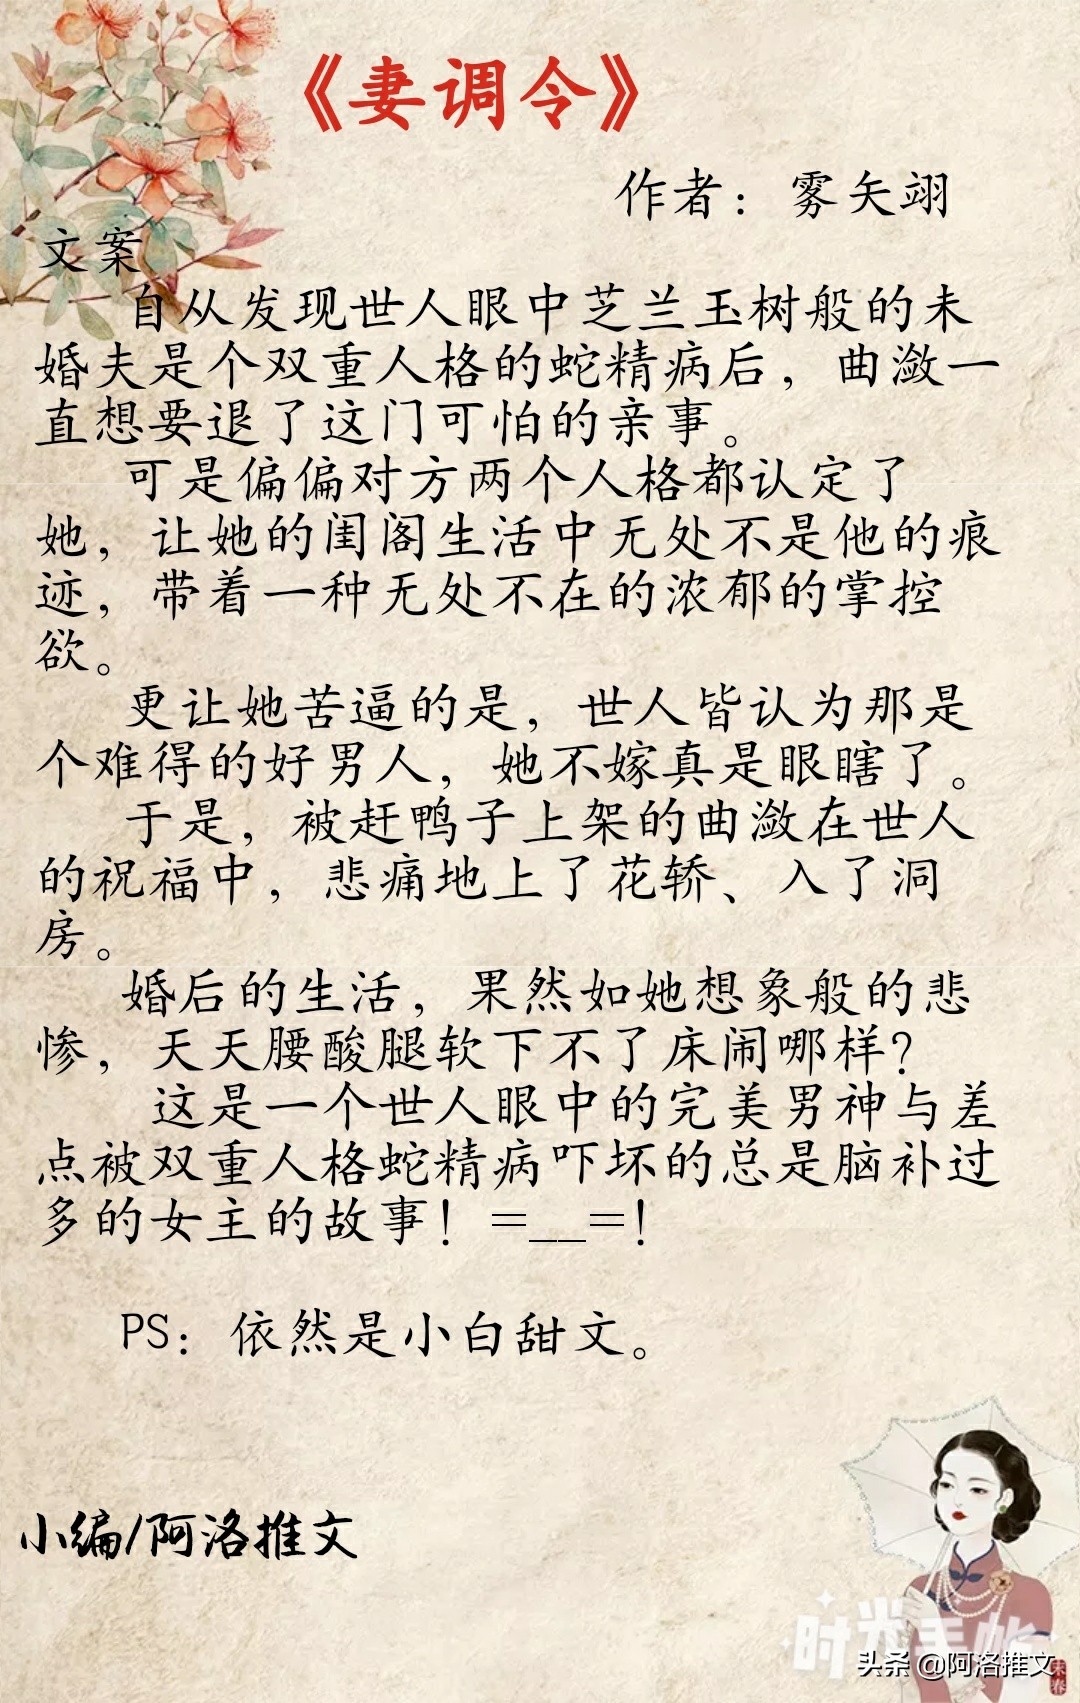 《妻调令》
作者：雾矢翊
文案
自从发现世人眼中芝兰玉树般的未
婚夫是个双重人格的蛇精病后，曲潋一
直想要退了这门可怕的亲事。
可是偏偏对方两个人格都认定了
她，让她的闺阁生活中无处不是他的痕
迹，带着一种无处不在的浓郁的掌控
欲。
更让她苦逼的是，世人皆认为那是
个难得的好男人，她不嫁真是眼瞎了。
于是，被赶鸭子上架的曲潋在世人
的祝福中，悲痛地上了花轿、入了洞
房。
婚后的生活，果然如她想象般的悲
惨，天天腰酸腿软下不了床闹哪样？
这是一个世人眼中的完美男神与差
点被双重人格蛇精病吓坏的总是脑补过
多的女主的故事！=__=！
PS：依然是小白甜文。
小编/阿洛推文
时光手帐
头条 @阿洛推文